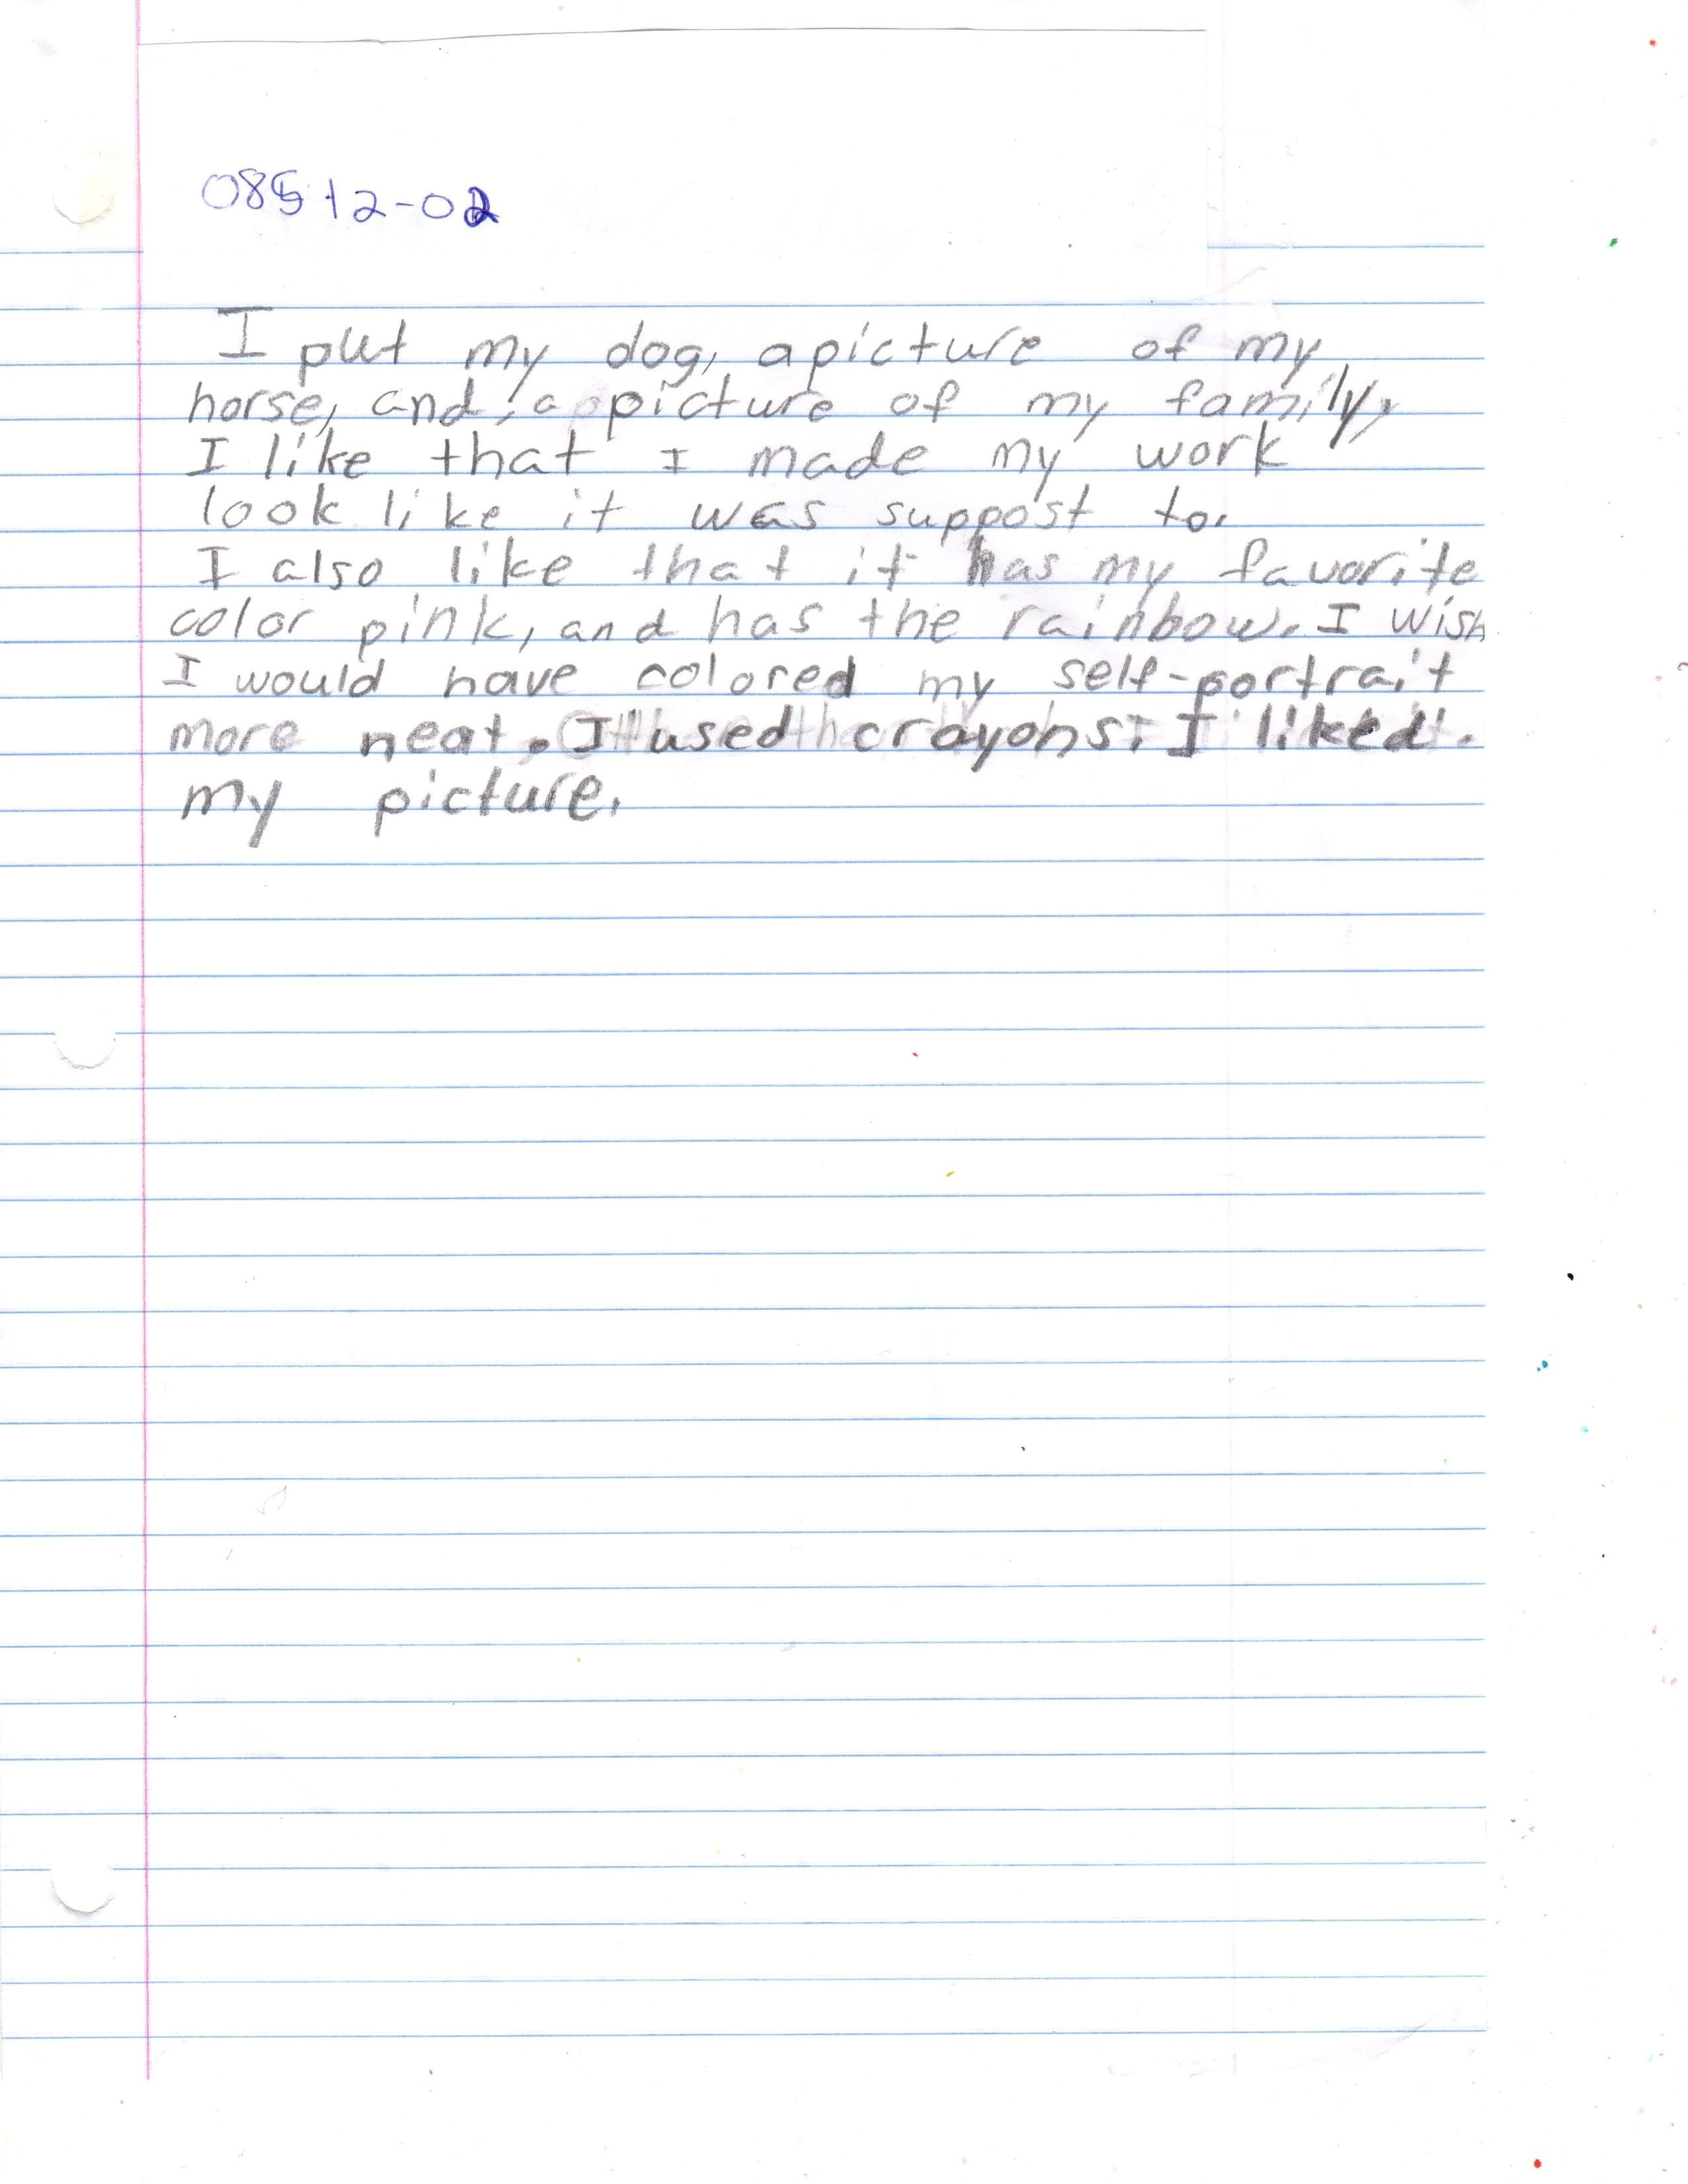 08512-02
I put my dog, a picture of my
horse, and a picture of my family,
I like that I made my work
look like it was suppost to.
I also like that it has my favorite
color pink, and has the rainbow. I wish
I would have colored my self-portrait
more neat. I used crayons. I liked
my picture.